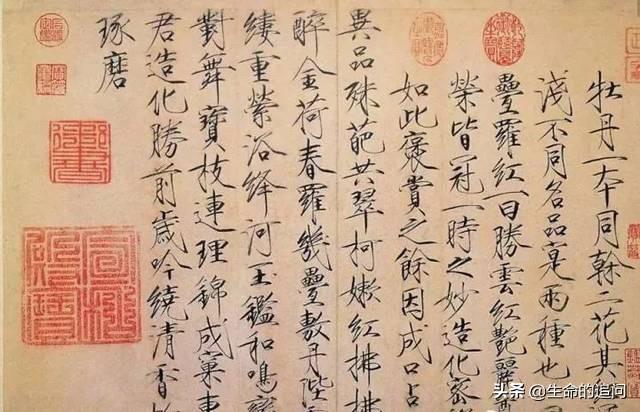 牡丹一本同幹二花其
淺不同名品寔兩種也
疊羅紅一曰勝雲紅艷麗
榮皆冠一時之妙造化密
如此褒賞之餘因成口占
異品殊葩共翠柯嫩紅拂拂
醉金荷春羅幾疊敷丹陛
縷重縈浴絳河玉鑑和鳴
對舞寶枝連理錦成窠東
君造化勝前歲吟繞清香
琢磨
头条 @生命的追问